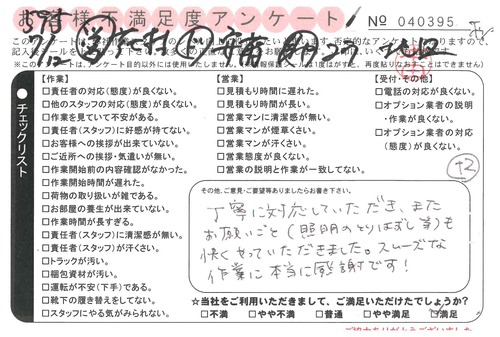 お客様不満足度アンケート
No 040395
チェックリスト
【作業】
□責任者の対応(態度)が良くない。
□他のスタッフの対応(態度)が良くない。
□作業を見ていて不安がある。
□責任者(スタッフ)に好感が持てない。
□お客様への挨拶が出来ていない。
□ご近所への挨拶・気遣いが無い。
□作業開始前の内容確認がなかった。
□作業開始時間が遅れた。
□荷物の取り扱いが雑である。
□お部屋の養生が出来ていない。
□作業時間が長すぎる。
□責任者(スタッフ)に清潔感が無い。
□責任者(スタッフ)が汗くさい。
□トラックが汚い。
□梱包資材が汚い。
□運転が不安(下手)である。
□靴下の履き替えをしてない。
□スタッフにやる気がみられない。
【営業】
□見積もり時間に遅れた。
□見積もり時間が長い。
□営業マンに清潔感が無い。
□営業マンが煙草くさい。
□営業マンが汗くさい。
□営業態度が良くない。
□営業の説明と作業が一致してない。
【受付・その他】
□電話の対応が良くない。
□オプション業者の説明
・作業が良くない。
□オプション業者の対応
(態度)が良くない。
+2
その他、ご意見・ご要望等ありましたらお書き下さい。
丁寧に対応していただき、また
お願いごと(照明のとりはずし等)も
快くやっていただきました。スムーズな
作業に本当に感謝です!
☆当社をご利用いただきまして、ご満足いただけたでしょうか?
□不満 □やや不満 □普通 □やや満足 □満足
ご協力ありがとうございました